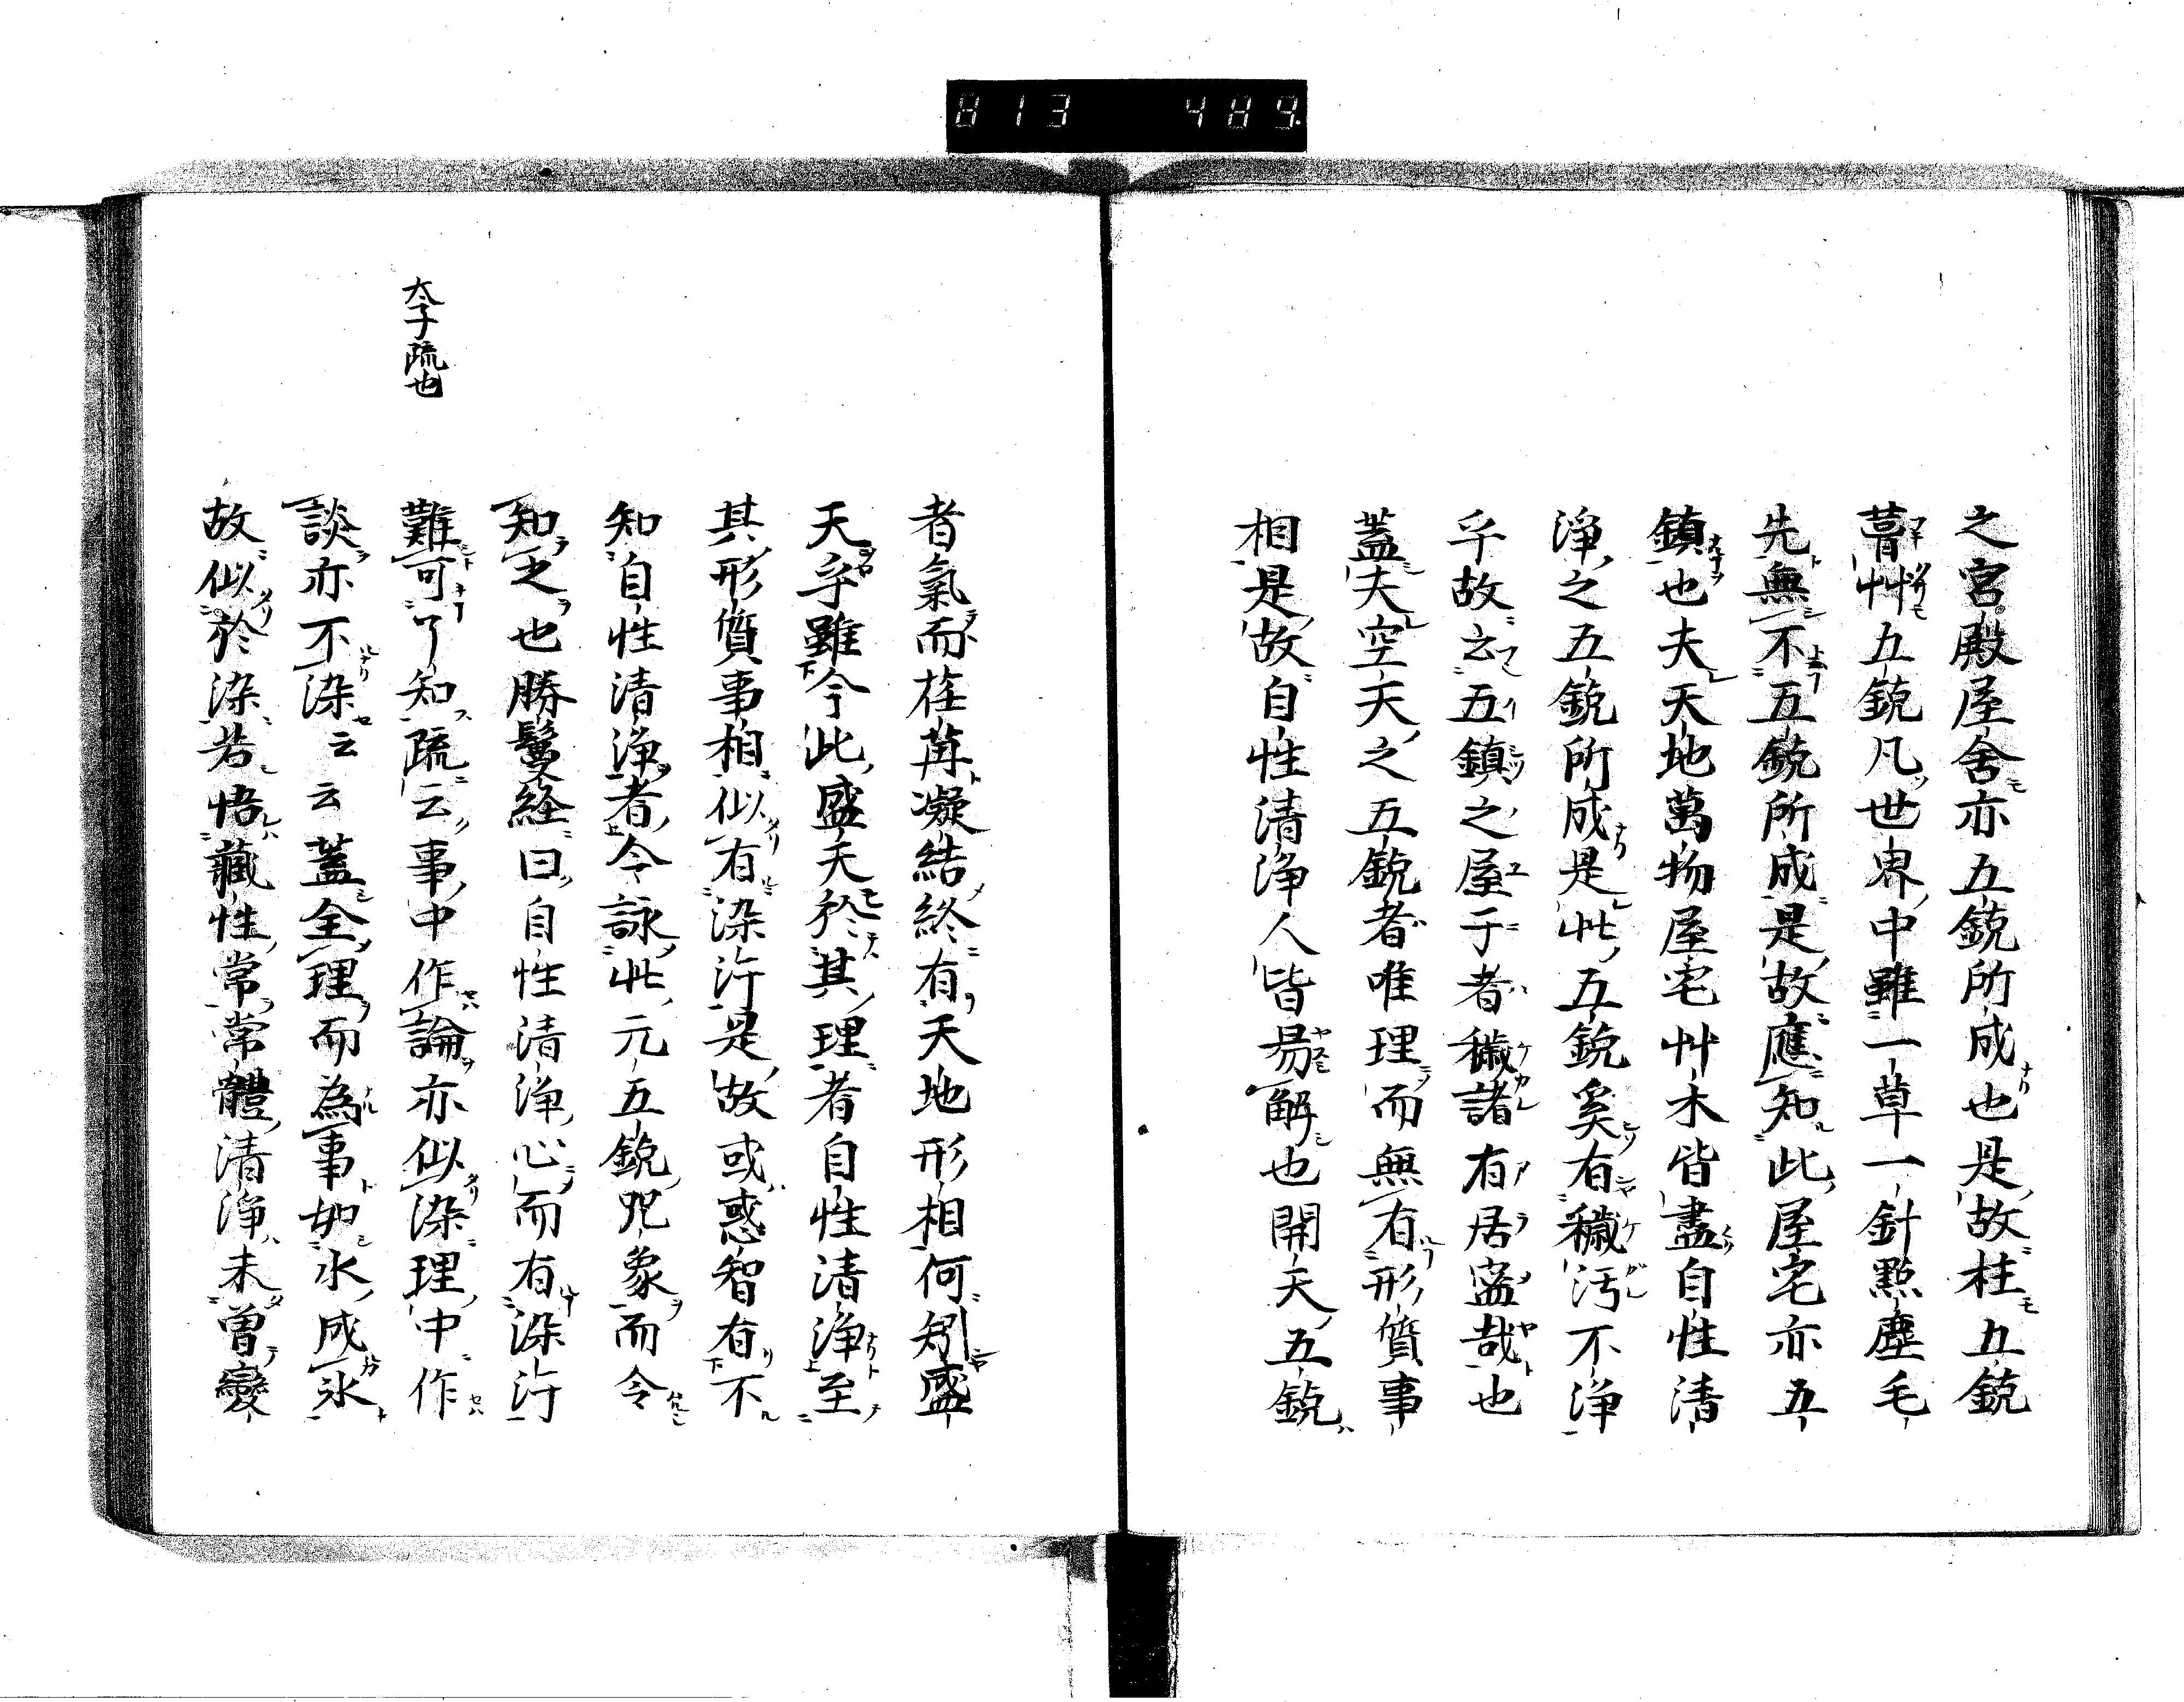 813 489
之宮殿屋舍亦五鋭所成也是故柱五鋭
葺艸五鋭凡世界中雖一草一針點塵毛
先無不五鋭所成是故應知此屋宅亦五
鎮也夫天地萬物屋宅艸木皆盡自性清
淨之五鋭所成是此五鋭奚有穢汚不淨
乎故云五鎮之屋于者穢諸有居盗哉也
蓋夫空天之五鋭者唯理而無有形質事
相是故自性清淨人皆易解也開天五鋭
者氣而在苒凝結終有天地形相何矧盛
天乎雖今此盛天於其理者自性清淨至
其形質事相似有染汚是故或惑智有不
知自性清淨者今詠此元五鋭咒象而令
知之也勝鬘経曰自性清淨心而有染汚
難可了知疏云事中作論亦似染理中作
談亦不染云云蓋全理而為事如水成氷
故似於染若悟藏性常常體清淨未曽變
太子疏也